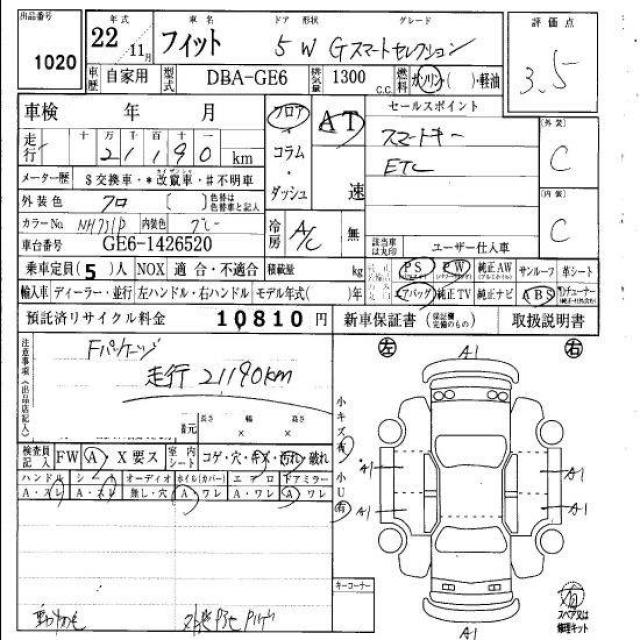 出品番号 年式 車名 ドア 形状 グレード 評価点
1020 22 11月 フィット 5 W Gスマートセレクション 3.5
車歴 自家用 型式 DBA-GE6 排気量 1300 c.c. 燃料 ガソリン( )・軽油
車検 年 月 フロア AT セールスポイント 外装
走行 十万千百十一 21190 km コラム・ダッシュ 速 スマートキー C
メーター歴 $交換車・*改竄車・#不明車 ETC 内装
外装色 クロ 〔 〕 色替は色替車と記入 冷房 A/C 無 C
カラーNo. NH731P 内装色 グレー
車台番号 GE6-1426520 該当車は丸印 ユーザー仕入車
乗車定員(5)人 NOX 適合・不適合 積載量 kg PS PW 純正AW サンルーフ 革シート
輸入車 ディーラー・並行 左ハンドル・右ハンドル モデル年式( )年 エアバッグ 純正TV 純正ナビ ABS
預託済リサイクル料金 10810 円 新車保証書 (保証欄完備のもの) 取扱説明書
注意事項(出品店記入) Fパッケージ 左 A1 右
走行 21190km
長さ 幅 高さ
番元 × ×
小キズ有
検査員記入 FW A・X要ス 室内シート コゲ・穴・キズ・汚れ・破れ
小U有
ハンドル シフト オーディオ ホイル(カバー) エアロ ドアミラー
A・スレ A・スレ 無し・穴 A・ワレ A・ワレ A・ワレ
A1 A1
A1 A1
キーコーナー
有
スペア又は修理キット
A1